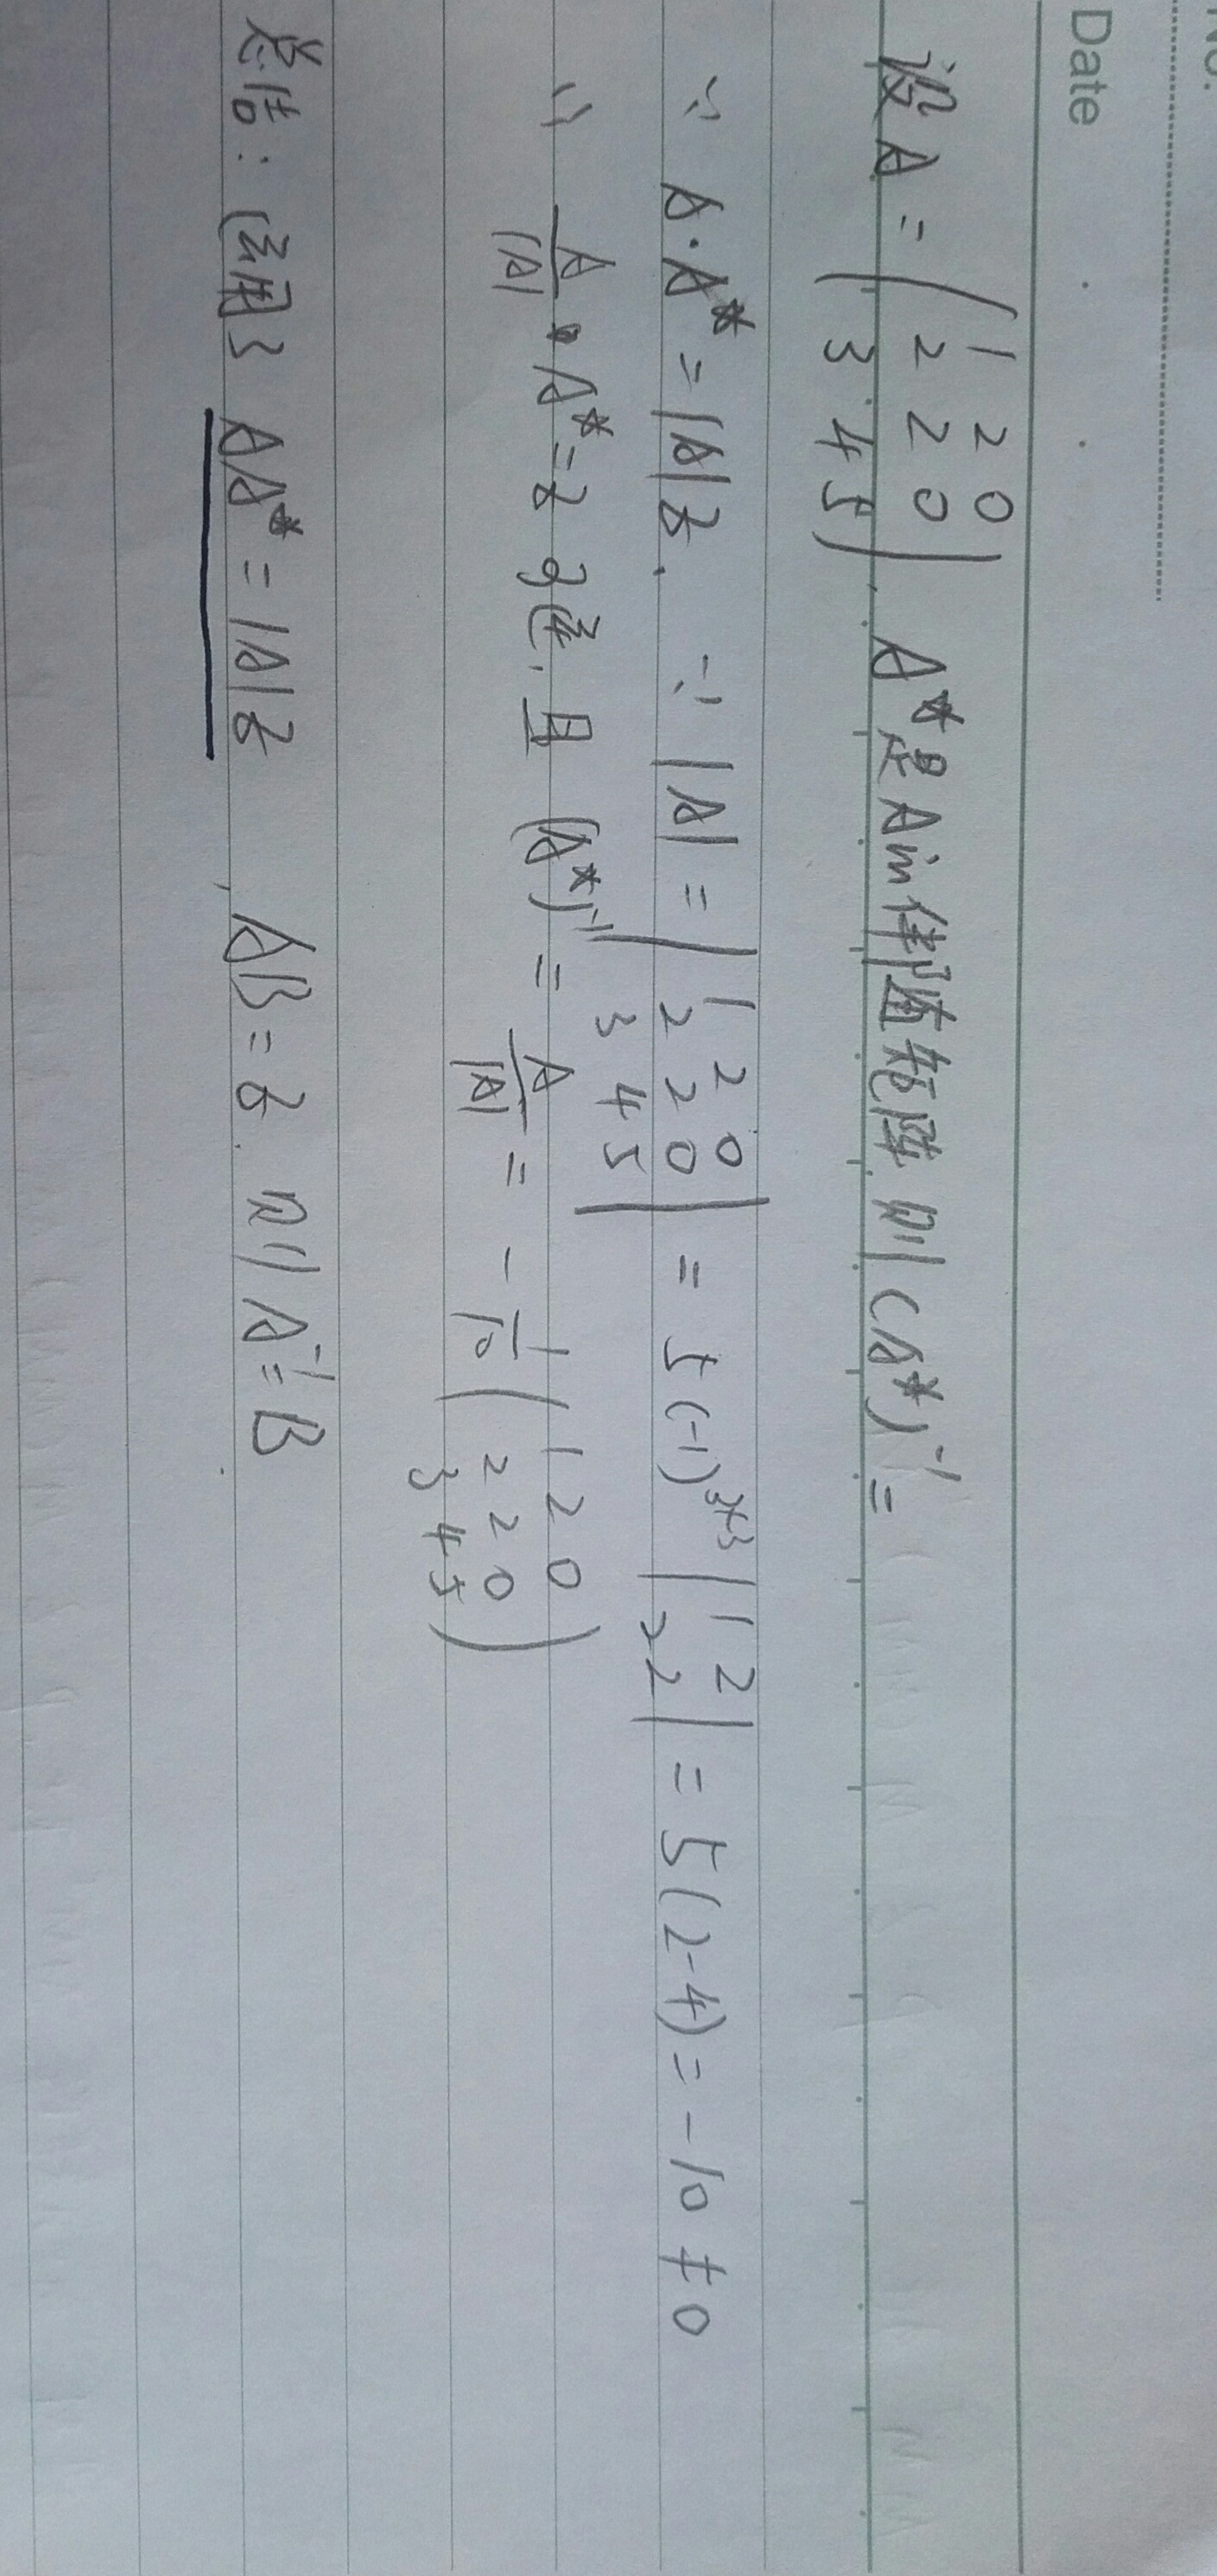 No.
Date
设 A = (1 2 0; 2 2 0; 3 4 5). A*是A的伴随矩阵. 则 (A*)⁻¹ =
∵ A·A* = |A|E. ∵ |A| = |1 2 0; 2 2 0; 3 4 5| = 5(-1)³⁺³ |1 2; 2 2| = 5(2-4) = -10 ≠ 0
∴ A/|A| · A* = E 可逆. 且 (A*)⁻¹ = A/|A| = - 1/10 (1 2 0; 2 2 0; 3 4 5)
总结: 运用了 AA* = |A|E , AB = E. 则 A⁻¹ = B.